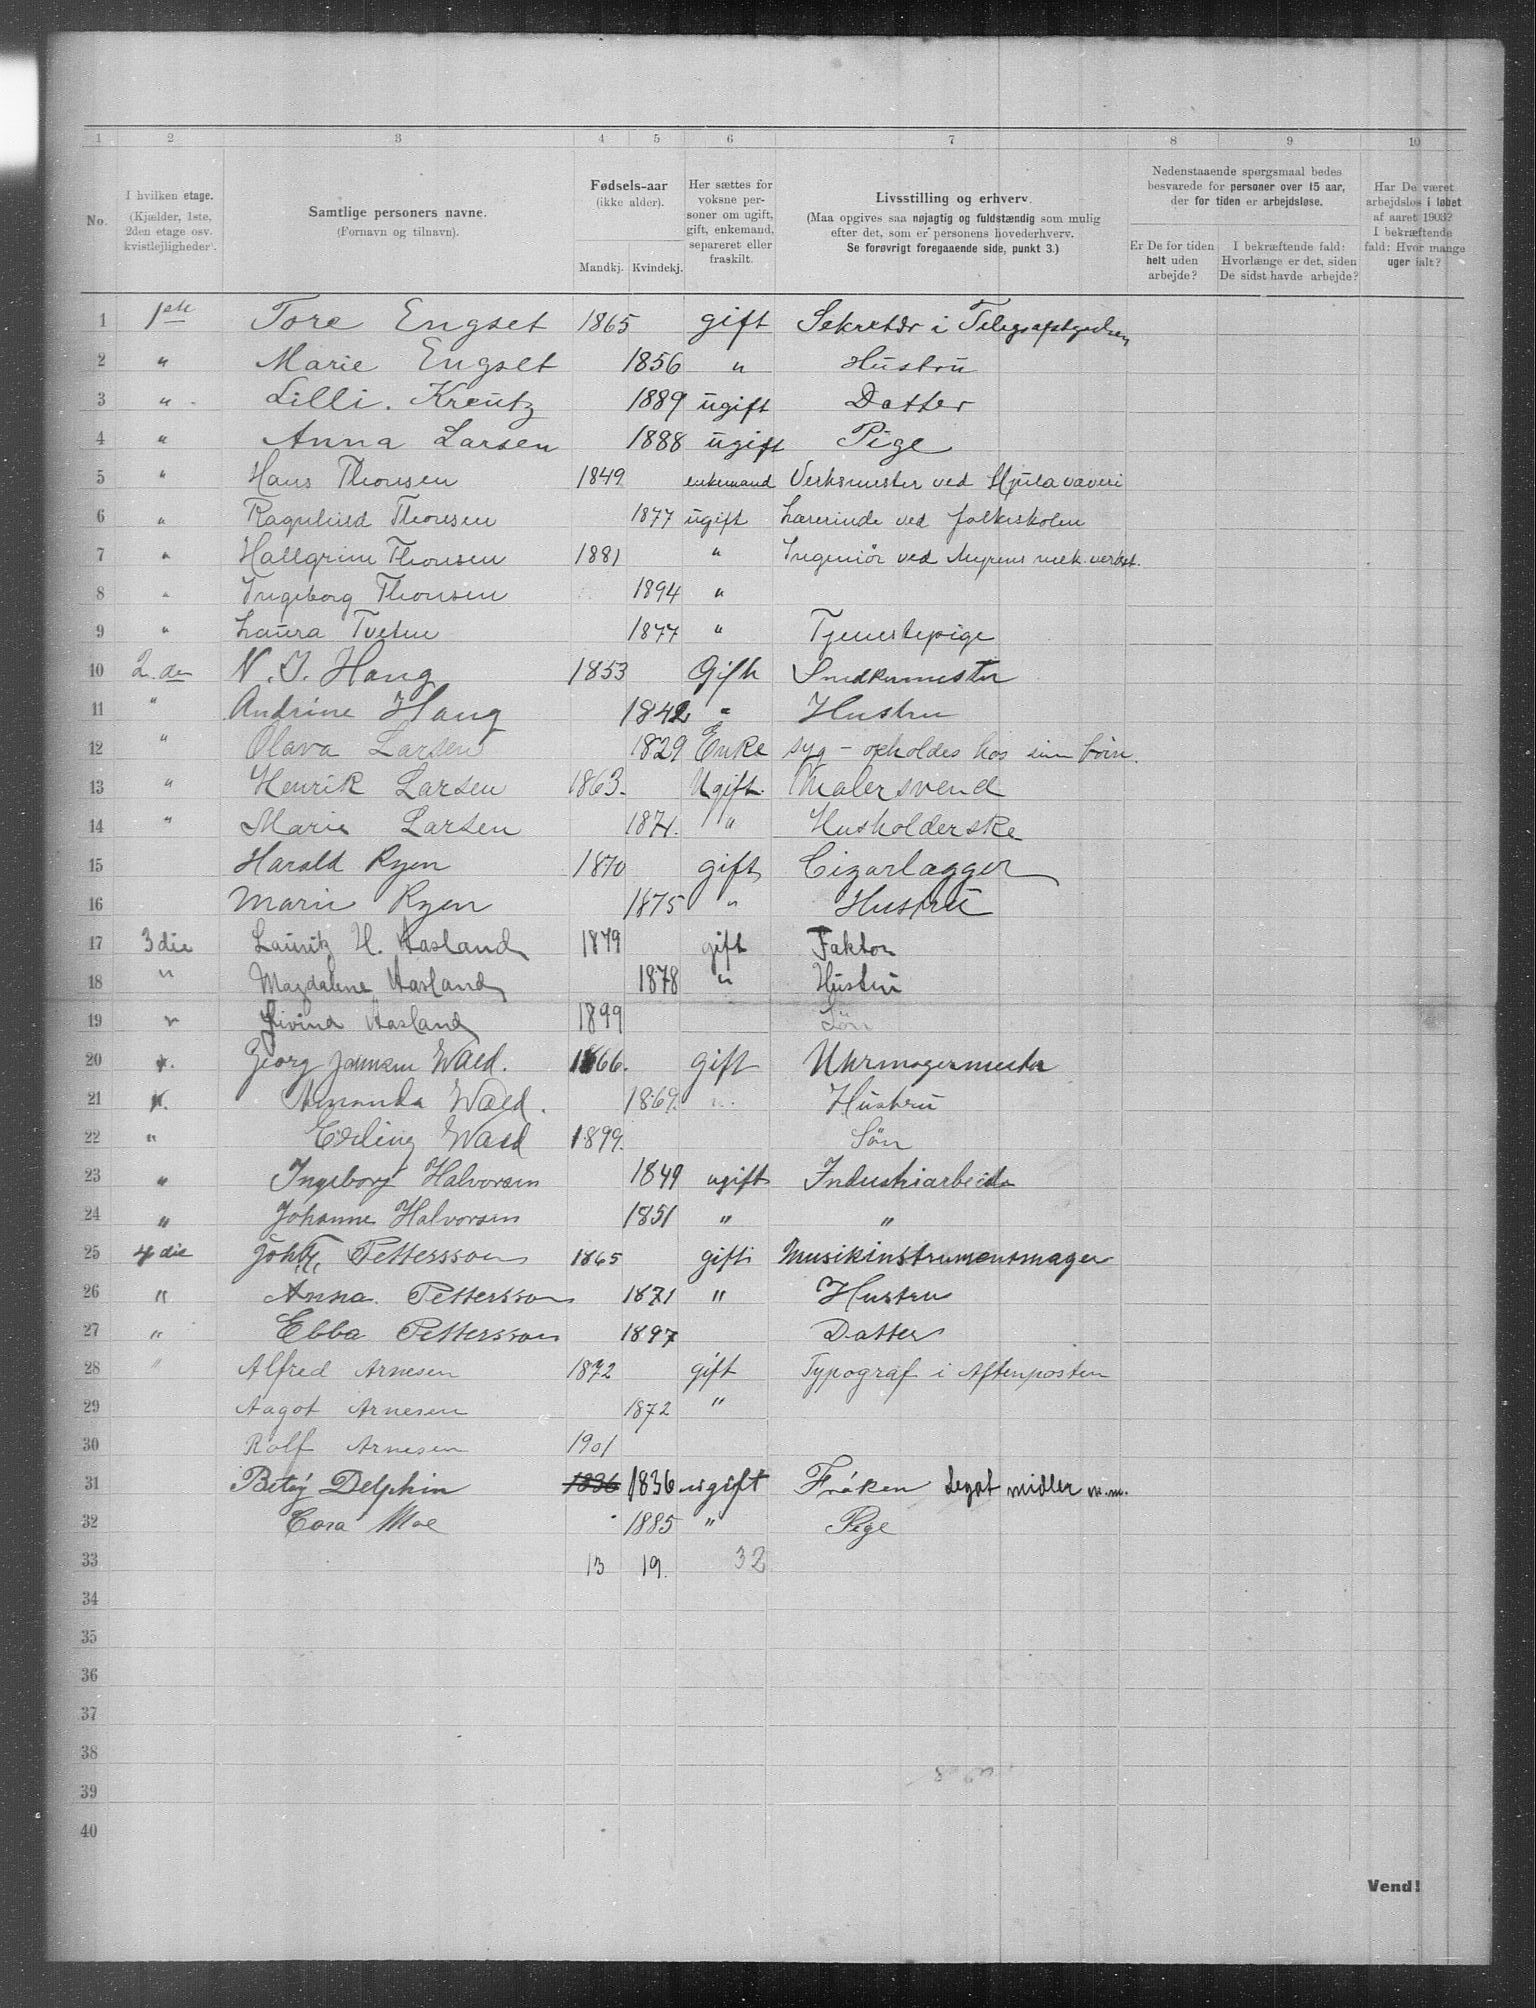 1 2 3 4 5 6 7 8 9 10
No. I hvilken etage. (Kjælder, 1ste, 2den etage osv. kvistleiligheder). Samtlige personers navne. (Fornavn og tilnavn). Fødsels-aar (ikke alder). Mandkj. Kvindekj. Her sættes for voksne personer om ugift, gift, enkemand, separeret eller fraskilt. Livsstilling og erhverv. (Maa opgives saa nøjagtig og fuldstændig som mulig efter det, som er personens hovederhverv. Se forøvrigt foregaaende side, punkt 3.) Nedenstaaende spørgsmaal bedes besvarede for personer over 15 aar, der for tiden er arbejdsløse. Er De for tiden helt uden arbejde? I bekræftende fald: Hvorlænge er det, siden De sidst havde arbejde? Har De været arbejdsløs i løbet af aaret 1903? I bekræftende fald: Hvor mange uger ialt?
1 1ste Tore Engset 1865 gift Sekretær i
2 " Marie Engset 1856 " Hustru
3 " Lilli. Kreutz 1889 ugift Datter
4 " Anna Larsen 1888 ugift Pige
5 " Hans Thonsen 1849 enkemand Verksmester ved Hjula væveri
6 " Ragnhild Thonsen 1877 ugift Lærerinde ved folkeskolen
7 " Hallgrim Thonsen 1881 " Ingeniør ved Myrens mek. verkst.
8 " Ingeborg Thonsen 1894 "
9 " Laura Tveten 1877 " Tjenestepige
10 2.den N. J. Haug 1853 Gift Snedkermester
11 " Andrine Haug 1842 " Hustru
12 " Olava Larsen 1829 Enke syg - opholdes hos sine børn.
13 " Henrik Larsen 1863. Ugift. Malersvend
14 " Marie Larsen 1871. " Husholderske
15 Harald Ryen 1870 gift Cigarlægger
16 Marie Ryen 1875 " Hustru
17 3die Lauritz H. Aasland 1879 gift Faktor
18 " Magdalene Aasland 1878 " Hustru
19 " Eivind Aasland 1899 Søn
20 ". Georg Jensen Wald. 1866. gift Uhrmagermester
21 ". Amanda Wald. 1869. " Hustru
22 " Erling Wald 1899. Søn
23 " Ingeborg Halvorsen 1849 ugift Industriarbeide
24 " Johanne Halvorsen 1851 " "
25 4die Pettersson 1865 gift Musikinstrumentmager
26 " Anna. Pettersson 1871 " Hustru
27 " Ebba Pettersson 1897 Datter
28 " Alfred Arnesen 1872 gift Typograf i Aftenposten
29 Aagot Arnesen 1872 "
30 Rolf Arnesen 1901
31 Betsy Delphin 1836 1836 ugift Frøken Legat midler m.m.
32 Cora Moe 1885 " Pige
33 13 19. 32
34
35
36
37
38
39
40
Vend!